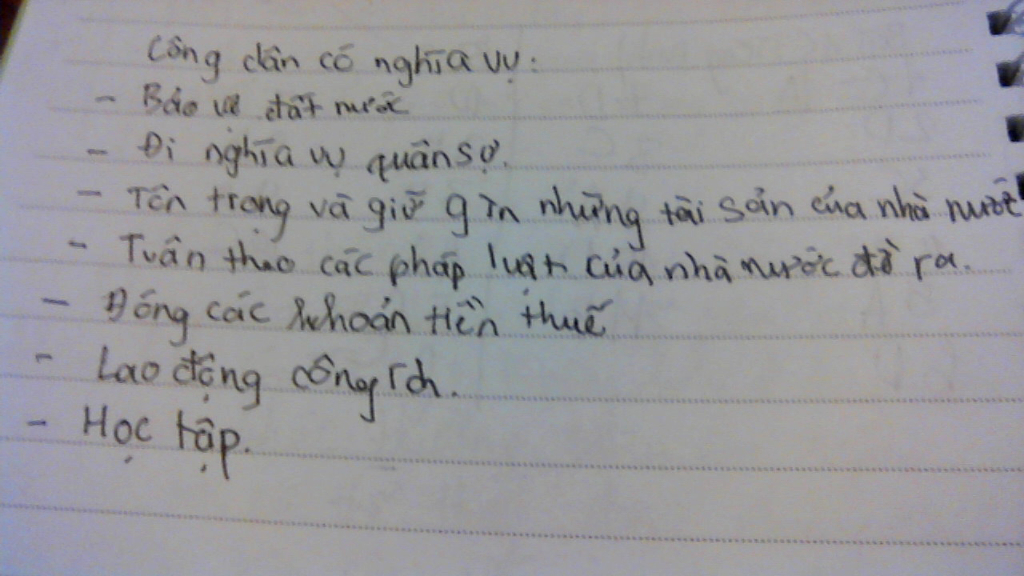 Công dân có nghĩa vụ:
- Bảo vệ đất nước
- Đi nghĩa vụ quân sự.
- Tôn trọng và giữ gìn những tài sản của nhà nước
- Tuân theo các pháp luật của nhà nước đề ra.
- Đóng các khoản tiền thuế
- Lao động công ích.
- Học tập.